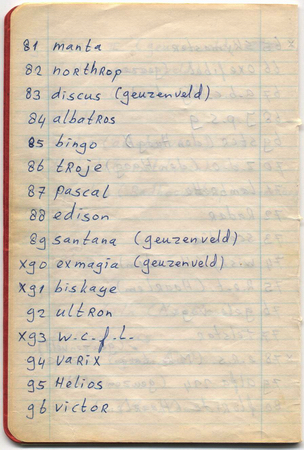 81 manta
82 northrop
83 discus (geuzenveld)
84 albatros
85 bingo
86 troje
87 pascal
88 edison
89 santana (geuzenveld)
x90 exmagia (geuzenveld)
x91 biskaye
92 ultron
x93 w.c.f.l.
94 varix
95 Helios
96 victor